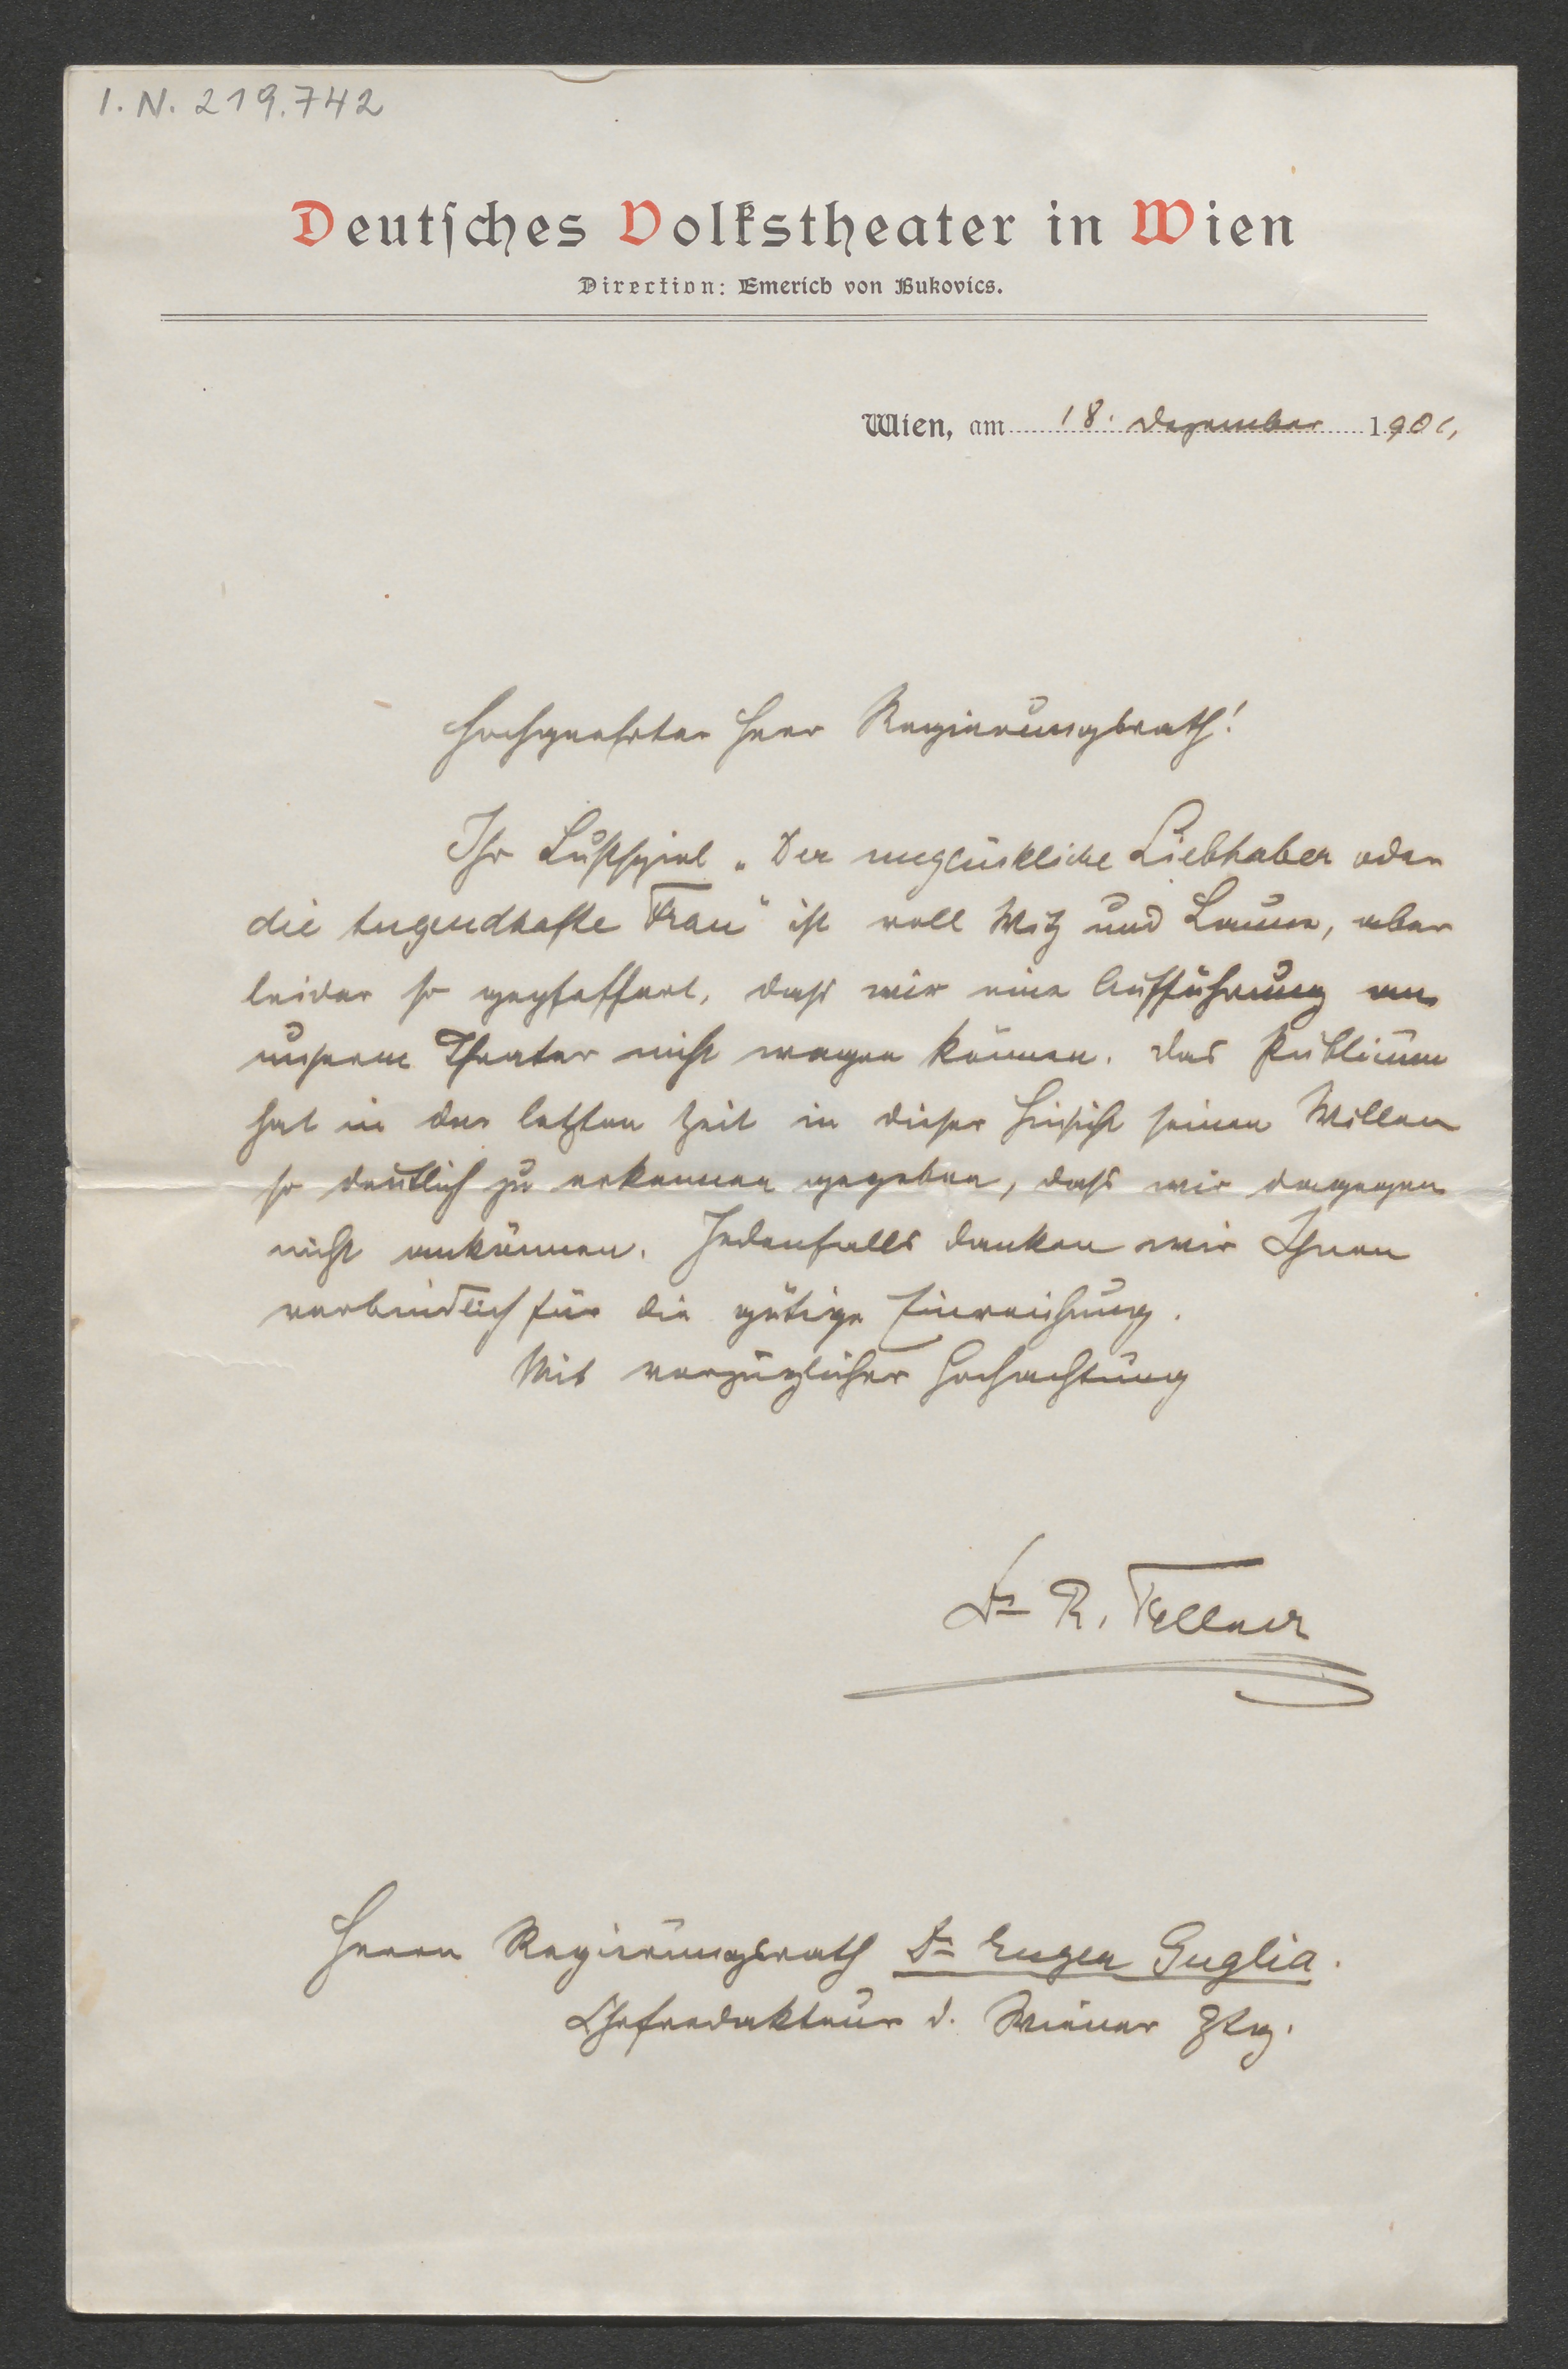 I. N. 219.742
Deutsches Volkstheater in Wien
Direction: Emerich von Bukovics.
Wien, am 18. Dezember 1901,
Hochgeehrter Herr Regierungsrath!
Ihr Lustspiel „Der unglückliche Liebhaber oder
die tugendhafte Frau“ ist voll Witz und Laune, aber
leider so gepfeffert, dass wir eine Aufführung an
unserm Theater nicht wagen können. Das Publicum
hat in der letzten Zeit in dieser Hinsicht seinen Willen
so deutlich zu erkennen gegeben, dass wir dagegen
nicht ankönnen. Jedenfalls danken wir Ihnen
verbindlich für die gütige Einreichung.
Mit vorzüglicher Hochachtung
Dr R. Fellner
Herrn Regierungsrath Dr Eugen Guglia.
Chefredakteur d. Wiener Ztg.